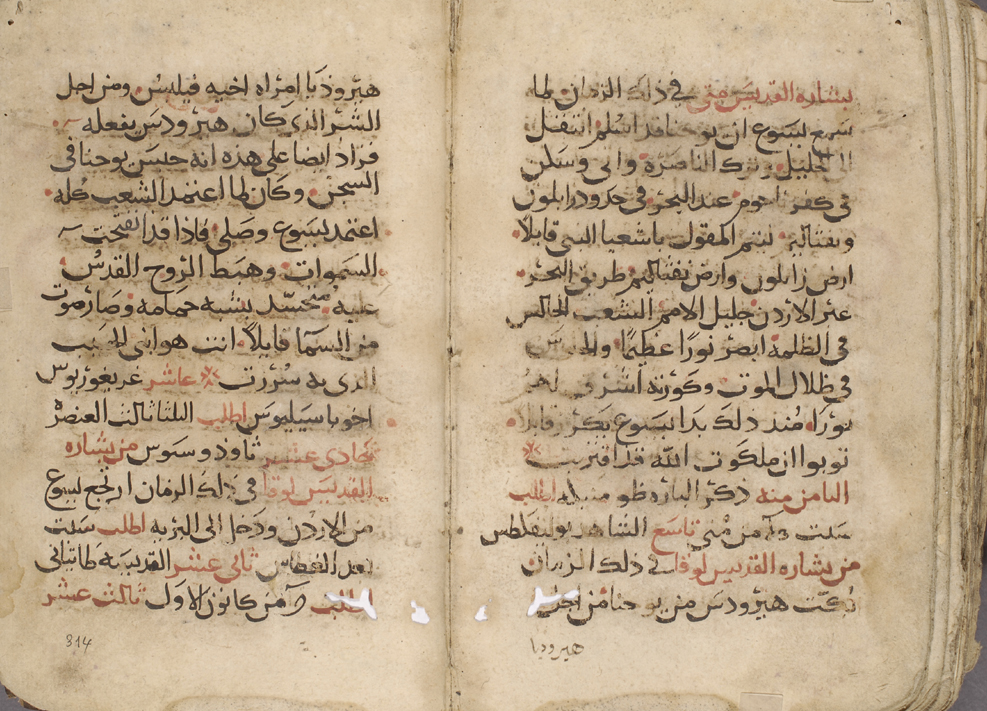 بشاره القديس متى في ذلك الزمان لما
سمع يسوع ان يوحنا قد اسلم انتقل
الى الجليل وترك الناصرة واتى وسكن
في كفرناحوم عند البحر في حدود زابلون
ونفتاليم ليتم المقول باشعيا النبي قايلا
ارض زابلون وارض نفتاليم طريق البحر
عبر الاردن جليل الامم الشعب الجالس
في الظلمة ابصر نورا عظيما والجلوس
في ظلال الموت وكورته اشرق لهم
نورا منذ ذلك بدا يسوع يكرز قايلا
توبوا ان ملكوت الله قد اقتربت
الثامن منه ذكر الباره اطلب
سبت من متى تاسع الشاهد
من بشاره القديس لوقا في ذلك الزمان
بكت هيرودس من يوحنا من اجل
هيروديا
8
هيروذيا امراه اخيه فيلبس ومن اجل
الشر الذي كان هيرودس يفعله
فزاد ايضا على هذه انه حبس يوحنا في
السجن وكان لما اعتمد الشعب كله
اعتمد يسوع وصلى فاذا قد انفتحت
السموات وهبط الروح القدس
عليه متجسد بشبه حمامه وصار صوت
من السما قايلا انت هو ابني الحبيب
الذي به سررت عاشر غريغوريوس
اخو باسيليوس اطلب الثلثا ثالث العنصره
حادي عشر ثاودوسيوس من بشاره
القديس لوقا في ذلك الزمان ارجع يسوع
من الاردن ودخل الى البريه اطلب سبت
بعد الغطاس ثاني عشر القديسه طاتياني
اطلب من كانون الاول ثالث عشر
314